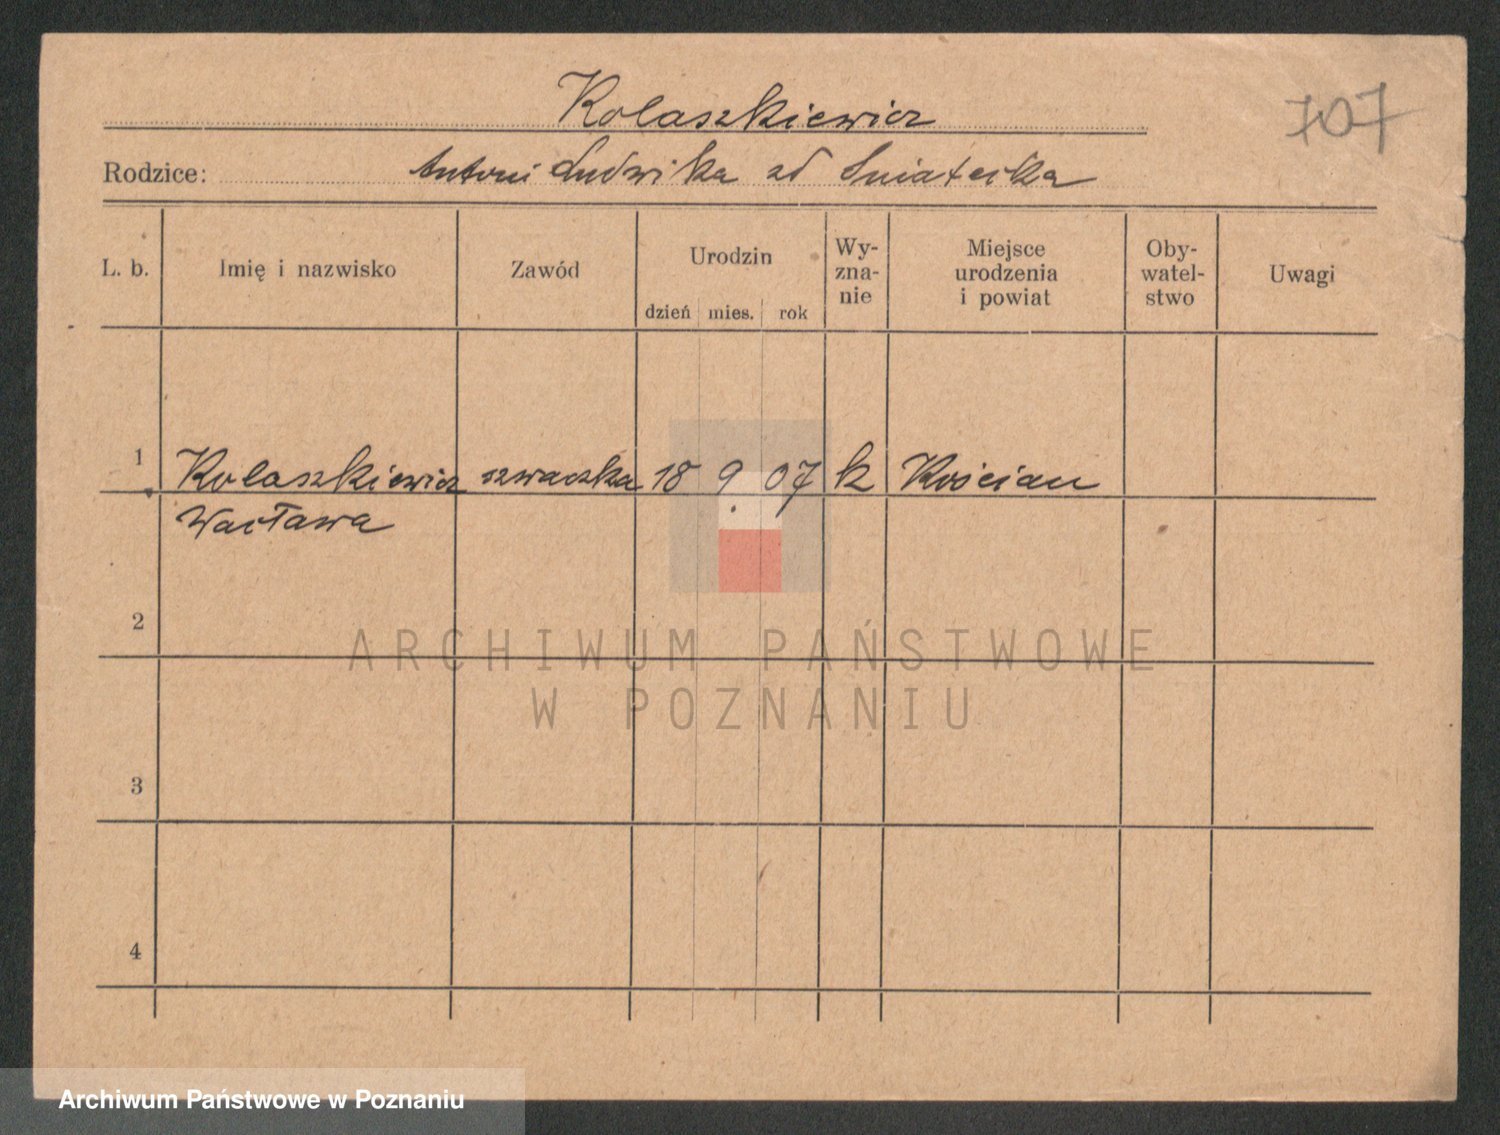 Kolaszkiewicz
707
Rodzice: Antoni Ludwika zd Śniatecka
L. b. Imię i nazwisko Zawód Urodzin dzień mies. rok Wy-zna-nie Miejsce urodzenia i powiat Oby-watel-stwo Uwagi
1 Kolaszkiewicz szwaczka 18 9. 07 k Kościan
Wacława
2
3
4
ARCHIWUM PAŃSTWOWE
W POZNANIU
Archiwum Państwowe w Poznaniu